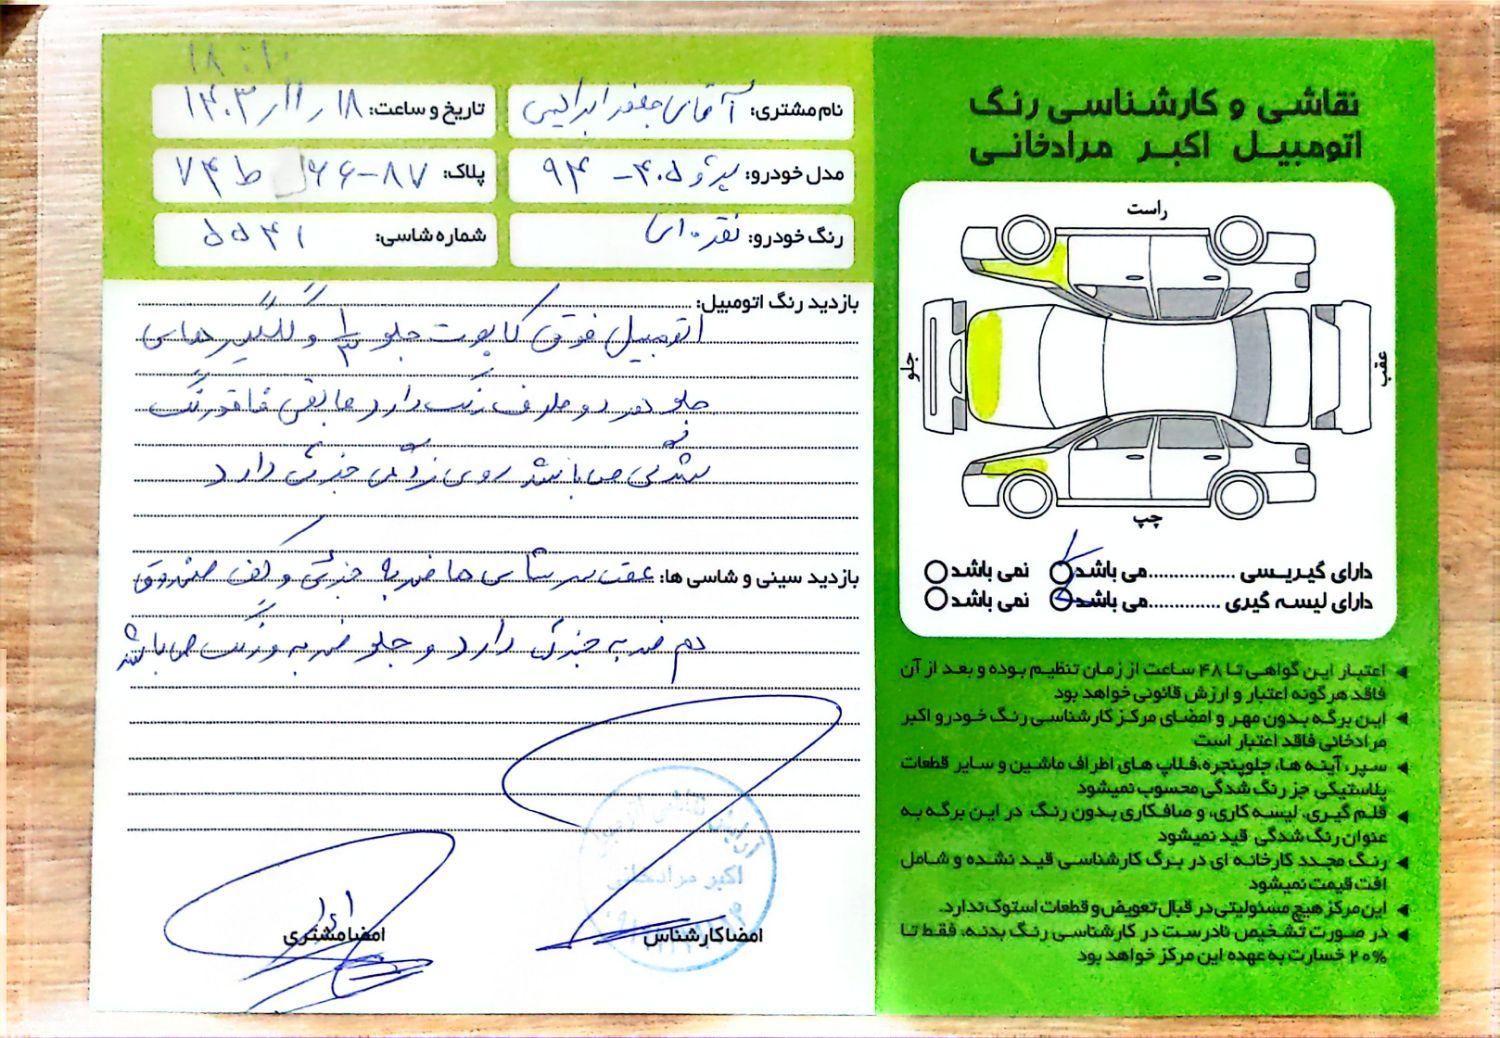 نقاشی و کارشناسی رنگ
اتومبیل اکبر مرادخانی
۱۸:۱۰
نام مشتری: آقای جعفر ابراهیمی
تاریخ و ساعت: ۱۴۰۳/۱۱/۱۸
مدل خودرو: پژو ۴۰۵ - ۹۴
پلاک: ۸۷-۶۶ ط ۷۴
رنگ خودرو: نقره ای
شماره شاسی: ۵۵۴۱
بازدید رنگ اتومبیل:
اتومبیل فوق کاپوت جلو ۱/۳ و گلگیر های
جلو هر دو طرف رنگ دارد مابقی فاقد رنگ
شدگی می باشد روی زدگی جزئی دارد
بازدید سینی و شاسی ها: عقب سر شاسی ها ضربه جزئی و کف صندوق
هم ضربه جزئی دارد و جلو ضربه و رنگ می باشد
امضا کارشناس
امضا مشتری
اکبر مرادخانی
راست
جلو
عقب
چپ
دارای گیریسی ................ می باشد نمی باشد
دارای لیسه گیری .............. می باشد نمی باشد
اعتبار این گواهی تا ۴۸ ساعت از زمان تنظیم بوده و بعد از آن
فاقد هرگونه اعتبار و ارزش قانونی خواهد بود
این برگه بدون مهر و امضای مرکز کارشناسی رنگ خودرو اکبر
مرادخانی فاقد اعتبار است
سپر، آینه ها، جلوپنجره، فلاپ های اطراف ماشین و سایر قطعات
پلاستیکی جز رنگ شدگی محسوب نمیشود
قلم گیری، لیسه کاری، و صافکاری بدون رنگ در این برگه به
عنوان رنگ شدگی قید نمیشود
رنگ مجدد کارخانه ای در برگ کارشناسی قید نشده و شامل
افت قیمت نمیشود
این مرکز هیچ مسئولیتی در قبال تعویض و قطعات استوک ندارد.
در صورت تشخیص نادرست در کارشناسی رنگ بدنه، فقط تا
۲۰% خسارت به عهده این مرکز خواهد بود